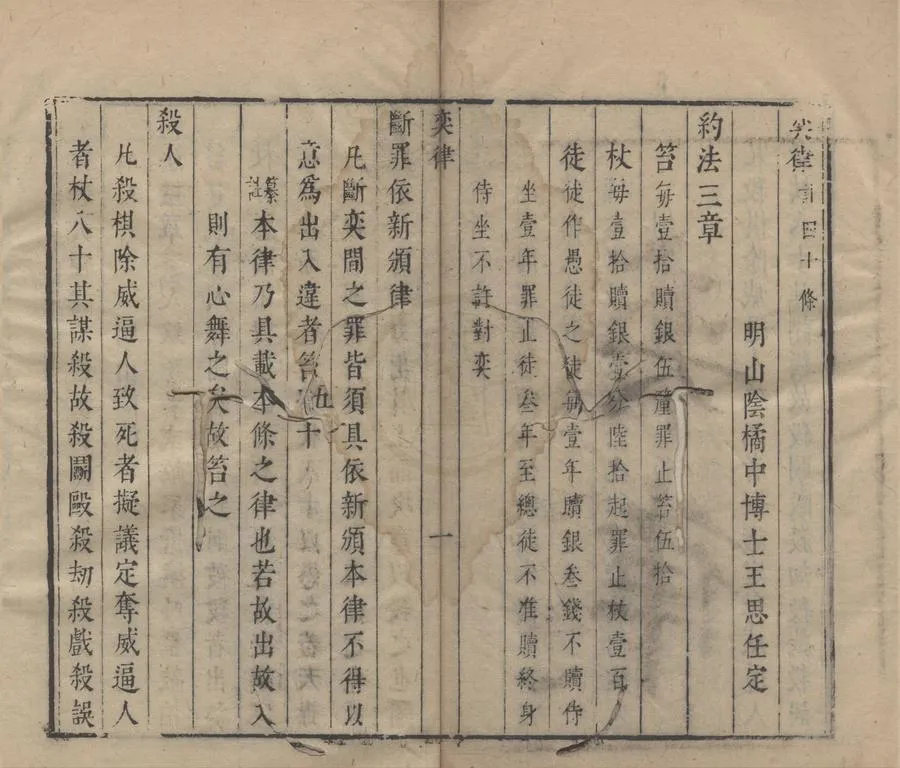 奕律計四十條
明山陰橘中博士王思任定
約法三章
笞每壹拾贖銀伍釐罪止笞伍拾
杖每壹拾贖銀壹分陸拾起罪止杖壹百
徒徒作愚徒之徒每壹年贖銀叁錢不贖侍
坐壹年罪止徒叁年至總徒不准贖終身
侍坐不許對奕
奕律
一
斷罪依新頒律
凡斷奕間之罪皆須具依新頒本律不得以
意為出入違者笞五十
纂註本律乃具載本條之律也若故出故入
則有心舞之矣故笞之
殺人
凡殺棋除威逼人致死者擬議定奪威逼人
者杖八十其謀殺故殺鬭毆殺劫殺戲殺誤